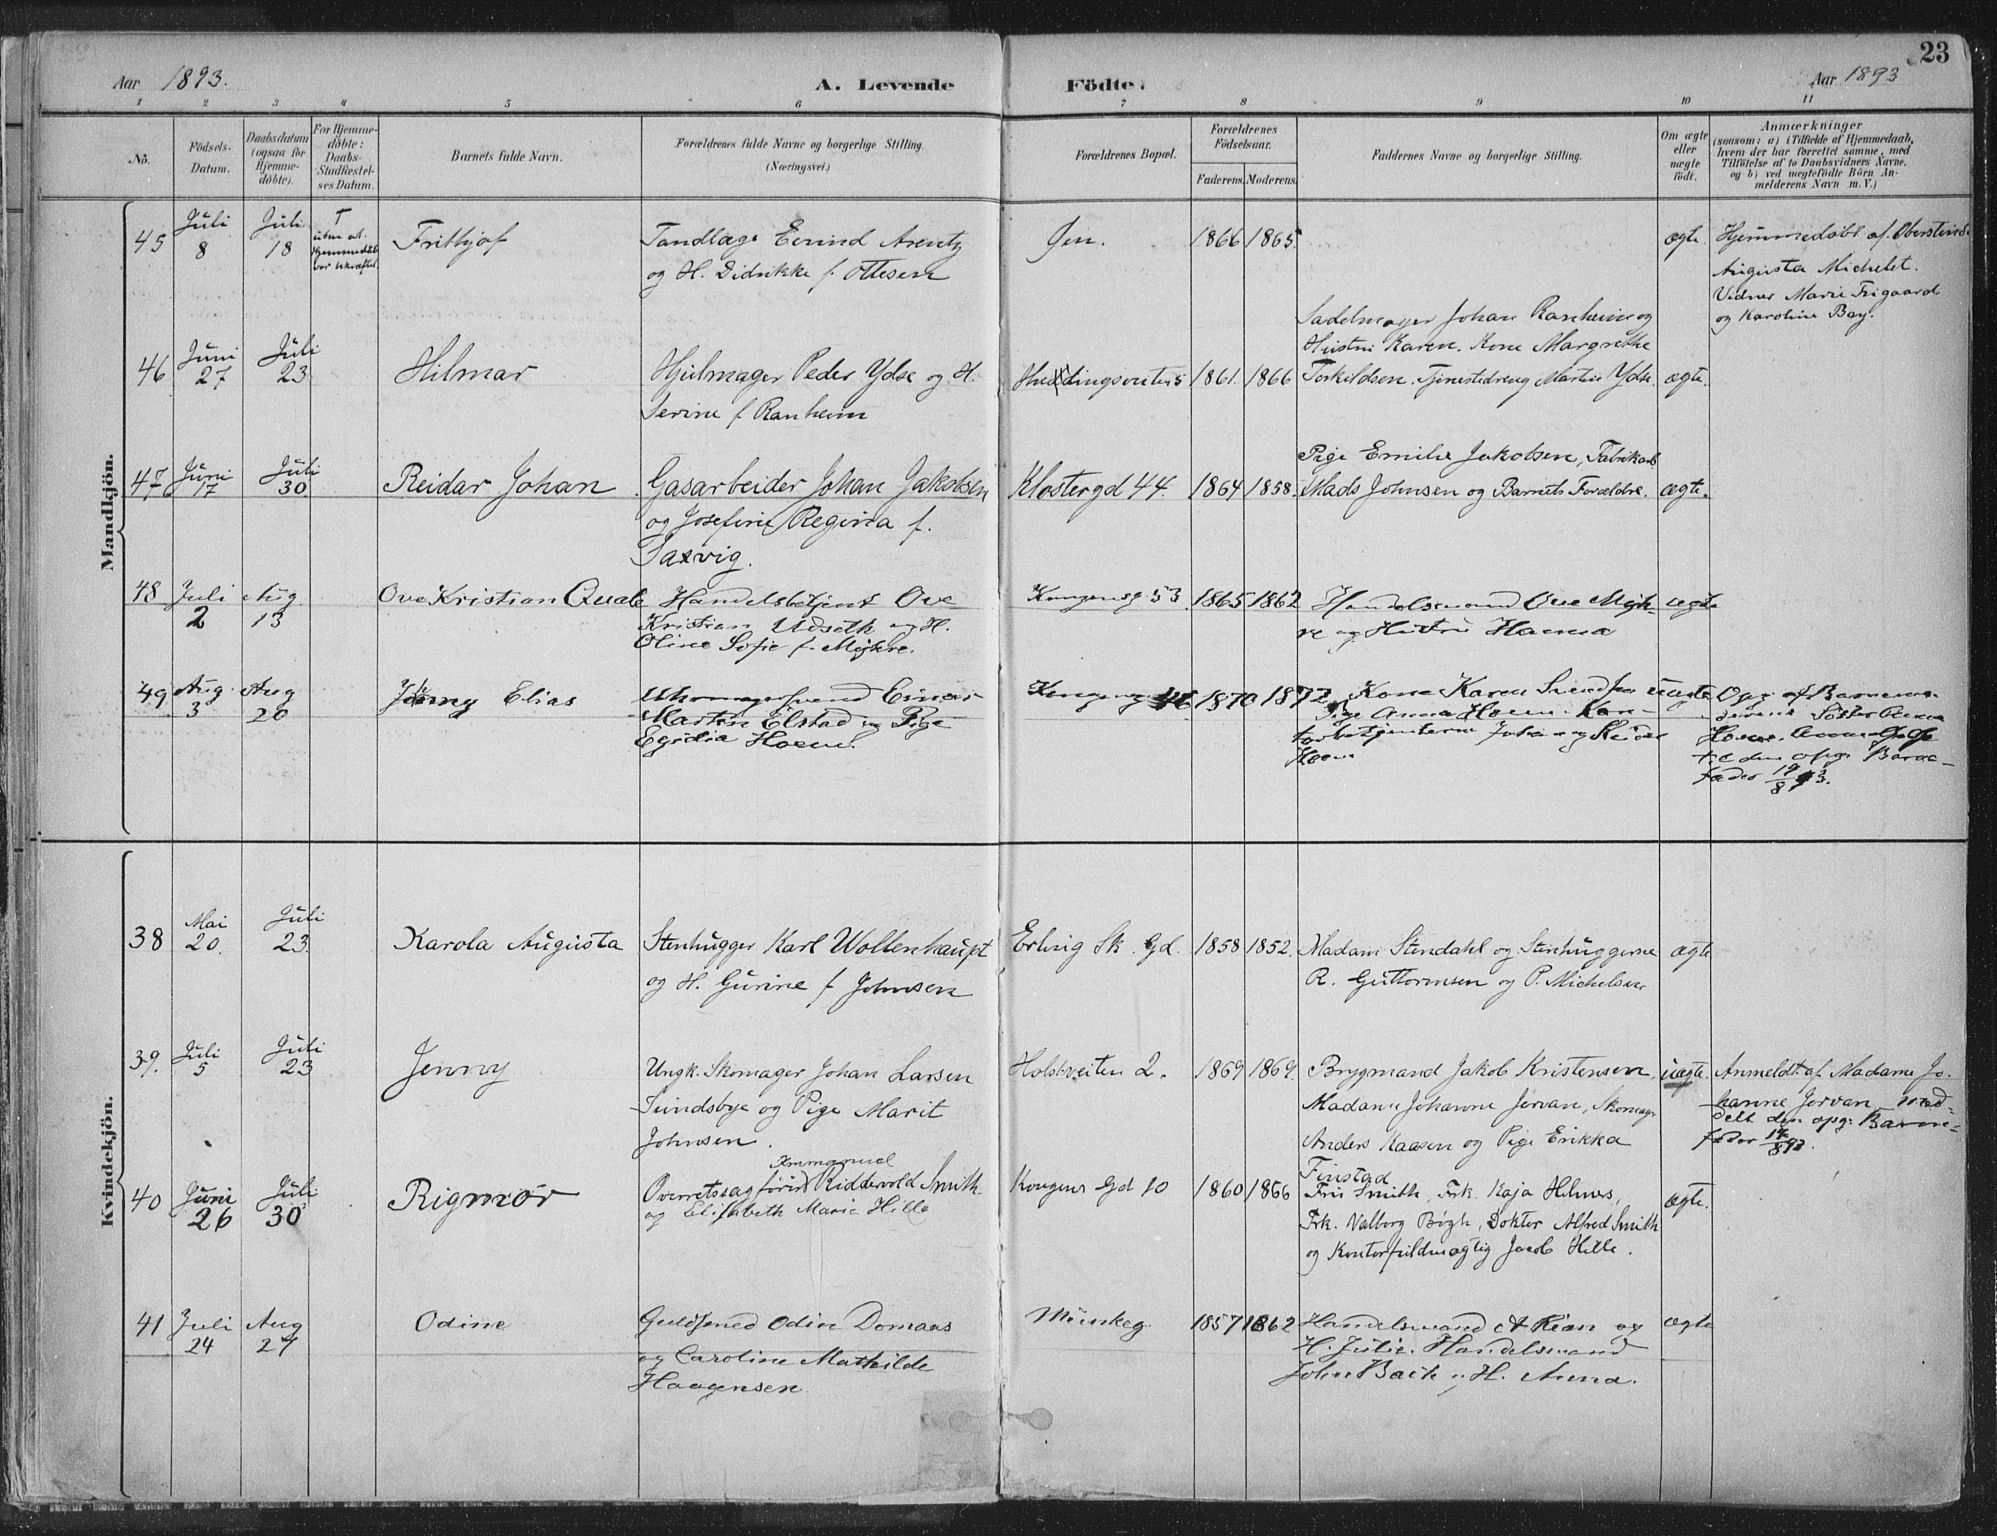 23
Aar 1893.
A. Levende
Födte.
Aar 1893
1 2 3 4 5 6 7 8 9 10 11
No.
Födsels-
Datum.
Daabsdatum
(ogsaa for
Hjemme-
döbte).
For Hjemme-
döbte:
Daabs-
Stadfæstel-
ses Datum.
Barnets fulde Navn.
Forældrenes fulde Navne og borgerlige Stilling.
(Næringsvei.)
Forældrenes Bopæl.
Forældrenes
Födselsaar.
Faderens.
Moderens.
Faddernes Navne og borgerlige Stilling.
Om ægte
eller
uægte
födt.
Anmærkninger
(saasom: a) i Tilfælde af Hjemmedaab,
hvem der har forrettet samme, med
Tilföielse af to Daabsvidners Navne,
og b) ved uægtefödte Börn An-
melderens Navn m. V.)
Mandkjön.
45
Juli
8
Juli
18
†
uden at
Hjemmedaab
var bekræftet.
Frithjof
Tandlæge Eivind Arentz
og H. Didrikke f. Ottesen
Ien.
1866
1865
ægte
Hjemmedøbt af
Augusta Michelet.
Vidner Marie Frigaard
og Karoline Bay.
46
Juni
27
Juli
23
Hilmar
Hjulmager Peder Ydse og H.
Serine f. Ranheim
1861.
1866
Sadelmager Johan Ranheim og
Hustru Karen. Kone Margrethe
Torkildsen. Tjenestedreng Martin Ydse.
ægte.
47
Juni
17
Juli
30
Reidar Johan
Gasarbeider Johan Jakobsen
og Josefine Regina f.
Saxvig.
Klostergd 44.
1864
1858.
Pige Emilie Jakobsen, Fabrikarb
Mads Johnsen og Barnets Forældre.
ægte.
48
Juli
2
Aug.
13
Ove Kristian Quale
Handelsbetjent Ove
Kristian Udseth og H.
Oline Sofie f. Mjøhre.
Kongensg 53
1865
1862
Handelsmand Ove Mjøh-
re og Hustru Hanna
ægte
49
Aug.
3
Aug
20
Elias
Uhrmagersvend Einar
Martin Elstad og Pige
Egidia Hoem.
1870
1872
Kone Karen
Pige Anna Hoem. Kon-
torbetjenterne Johan og
Hoem
uægte
Opg. af Barnemo-
derens Søster Anna
Hoem.
til den opg. Barne-
fader 19/8 93.
Kvindekjön.
38
Mai
20.
Juli
23
Karola Augusta
Stenhugger Karl Woltenhaupt
og H. Gurine f. Johnsen
Erling Sk. Gd.
1858
1852.
Madam Stendahl og Stenhuggerne
R. Guttormsen og P. Michelsen
ægte
39.
Juli
5
Juli
23
Jenny
Ungk. Skomager Johan Larsen
Sundsbye og Pige Marit
Johnsen.
Holstveiten 2.
1869
1869.
Brygmand Jakob Kristensen,
Madame Johanne Jervan, Skomager
Anders Kaasen og Pige Erikka
Finstad
uægte.
Anmeldt af Madame Jo-
hanne Jervan med-
delt den opg. Barne-
fader 14/8 93.
40
Juni
26
Juli
30
Rigmor
Emmanuel
Overretssagfører Riddervold Smith
og Elisabeth Marie Hille
Kongens Gd 10
1860
1866
Fru Smith, Frk. Kaja Holmes,
Frk. Valborg Bøgh, Doktor Alfred Smith
og Kontorfuldmægtig Jacob Hille.
ægte.
41
Juli
24
Aug
27
Odine
Guldsmed Odin Domaas
og Caroline Mathilde
Haagensen
Munkeg.
1857
1862
Handelsmand A Rian og
H. Julie. Handelsmand
John Bach og H. Anna.
ægte